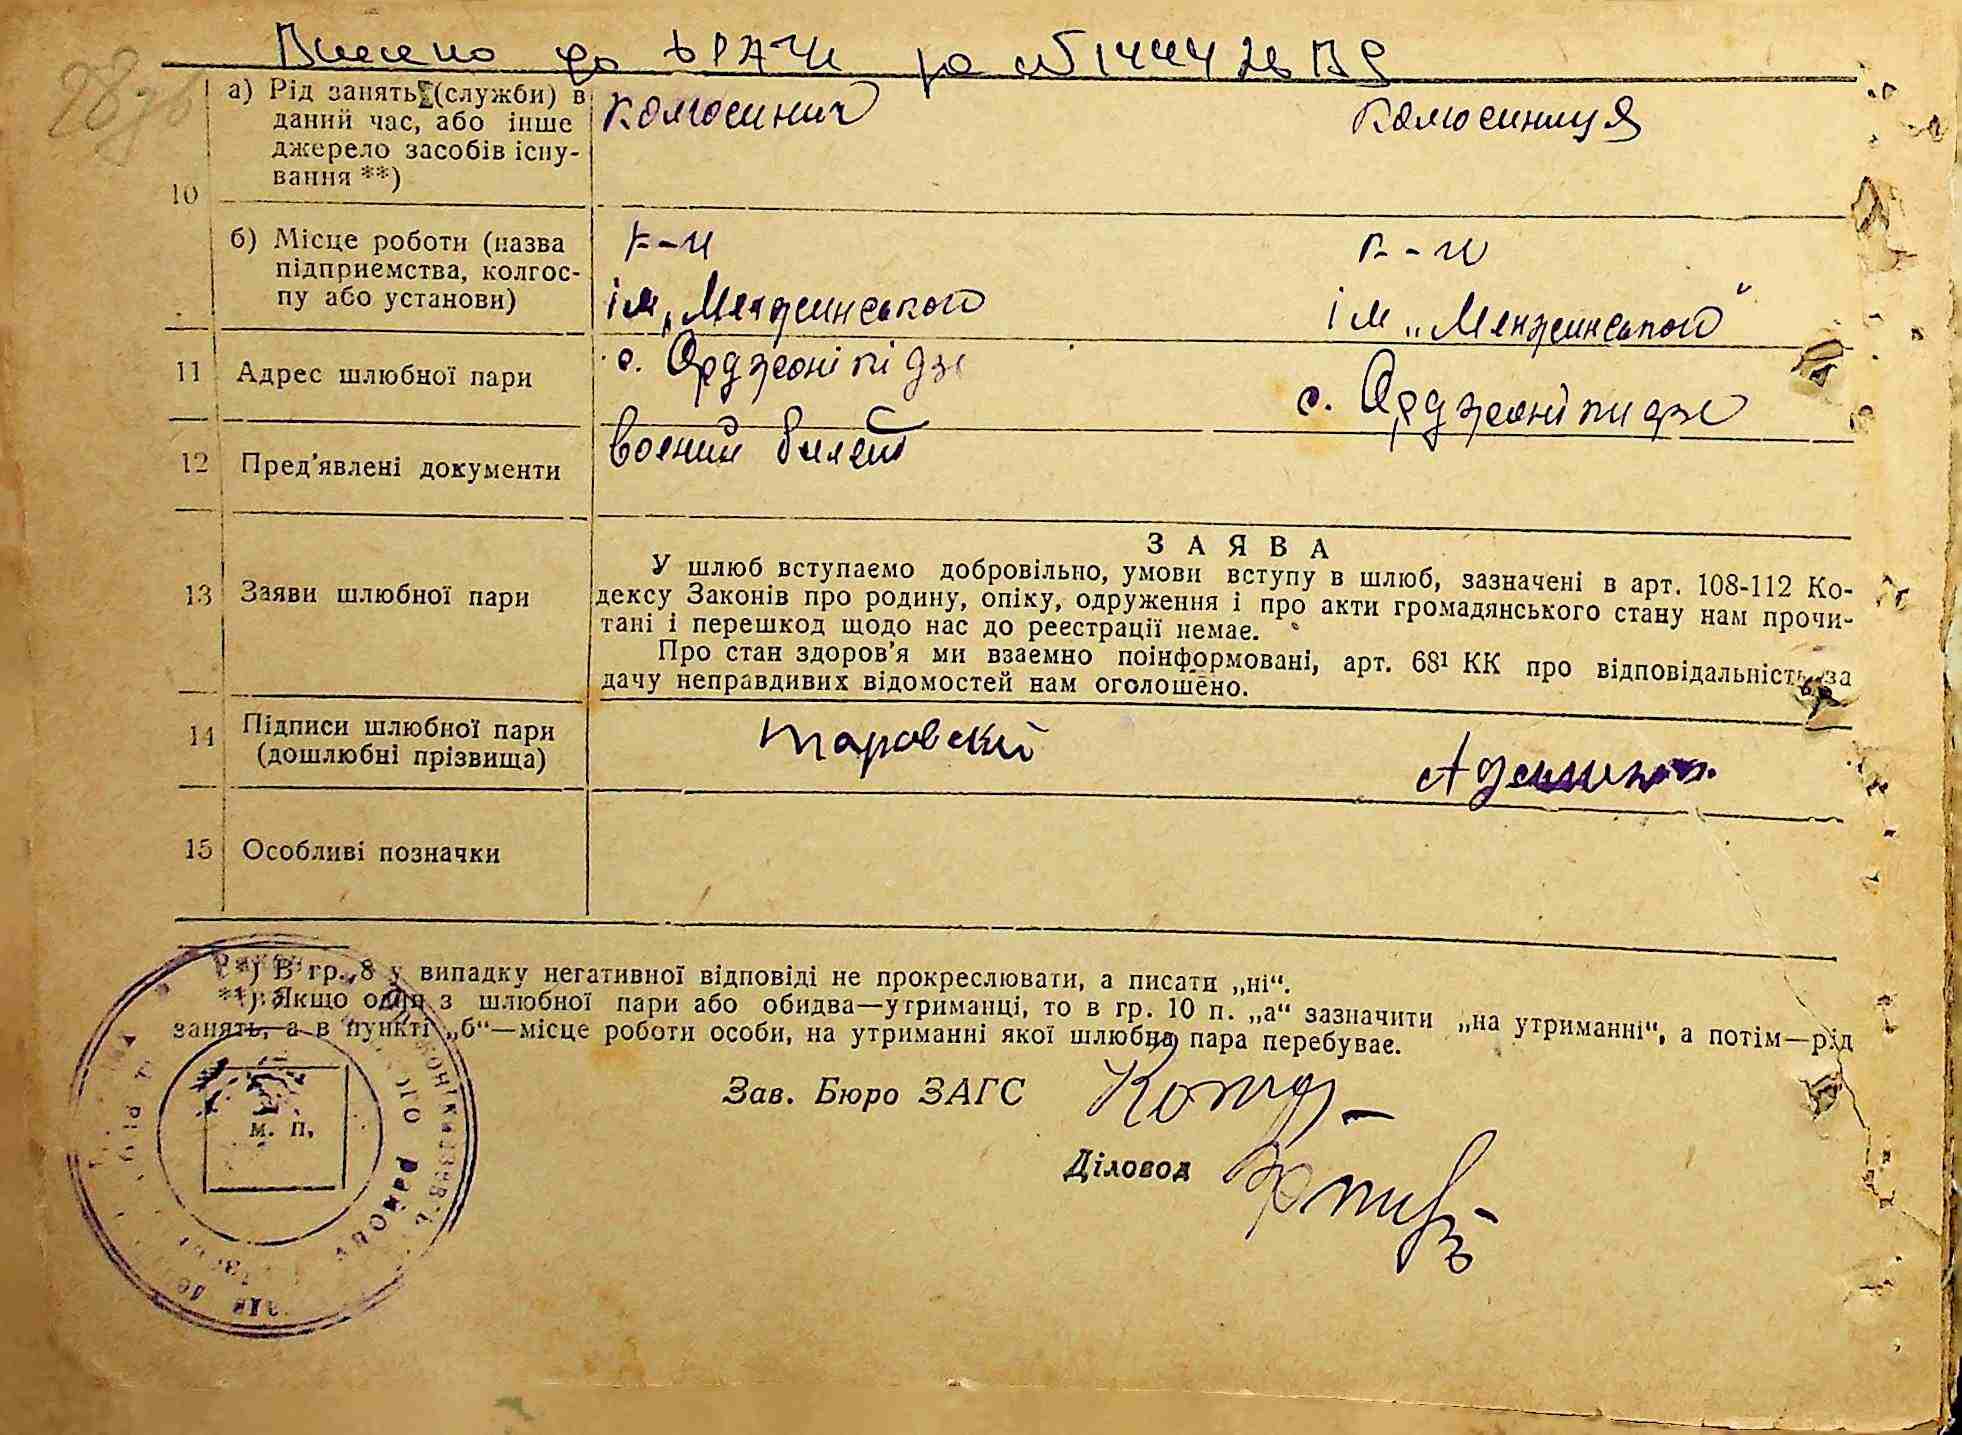 Внесено до ДРАЦС за №
10
а) Рід занять (служби) в
даний час, або інше
джерело засобів існу-
вання **)
б) Місце роботи (назва
підприємства, колгос-
пу або установи)
к-п
к-п
ім „Менжинського
ім „Менжинського"
11 Адрес шлюбної пари
с. Орджонікідзе
с. Орджонікидзе
12 Пред'явлені документи
воений билет
13 Заяви шлюбної пари
ЗАЯВА
У шлюб вступаємо добровільно, умови вступу в шлюб, зазначені в арт. 108-112 Ко-
дексу Законів про родину, опіку, одруження і про акти громадянського стану нам прочи-
тані і перешкод щодо нас до реестрації немає.
Про стан здоров'я ми взаємно поінформовані, арт. 68¹ КК про відповідальність за
дачу неправдивих відомостей нам оголошено.
14 Підписи шлюбної пари
(дошлюбні прізвища)
Таровский
15 Особливі позначки
*) В гр. 8 у випадку негативної відповіді не прокреслювати, а писати „ні“.
**) Якщо один з шлюбної пари або обидва—утриманці, то в гр. 10 п. „а“ зазначити „на утриманні“, а потім—рід
занять, а в пункті „б“—місце роботи особи, на утриманні якої шлюбна пара перебуває.
Зав. Бюро ЗАГС
Діловод
м. п.